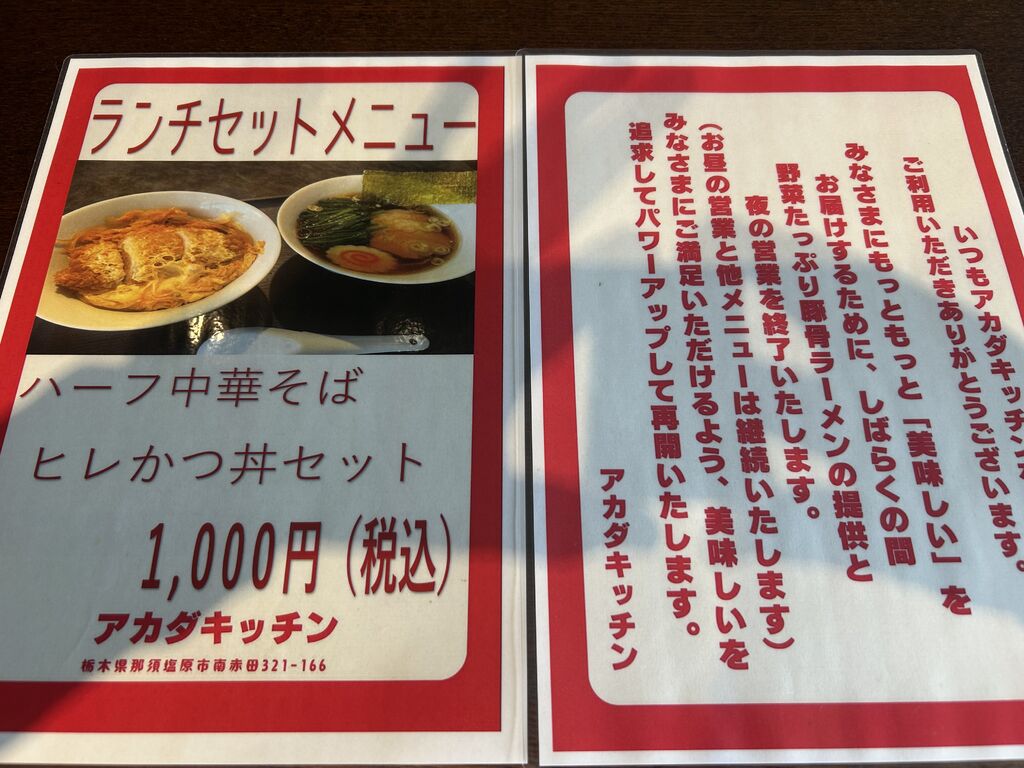 ランチセットメニュー
ハーフ中華そば
ヒレかつ丼セット
1,000円(税込)
アカダキッチン
栃木県那須塩原市南赤田321-166
いつもアカダキッチンを
ご利用いただきありがとうございます。
みなさまにもっともっと「美味しい」を
お届けするために、しばらくの間
野菜たっぷり豚骨ラーメンの提供と
夜の営業を終了いたします。
(お昼の営業と他メニューは継続いたします)
みなさまにご満足いただけるよう、美味しいを
追求してパワーアップして再開いたします。
アカダキッチン